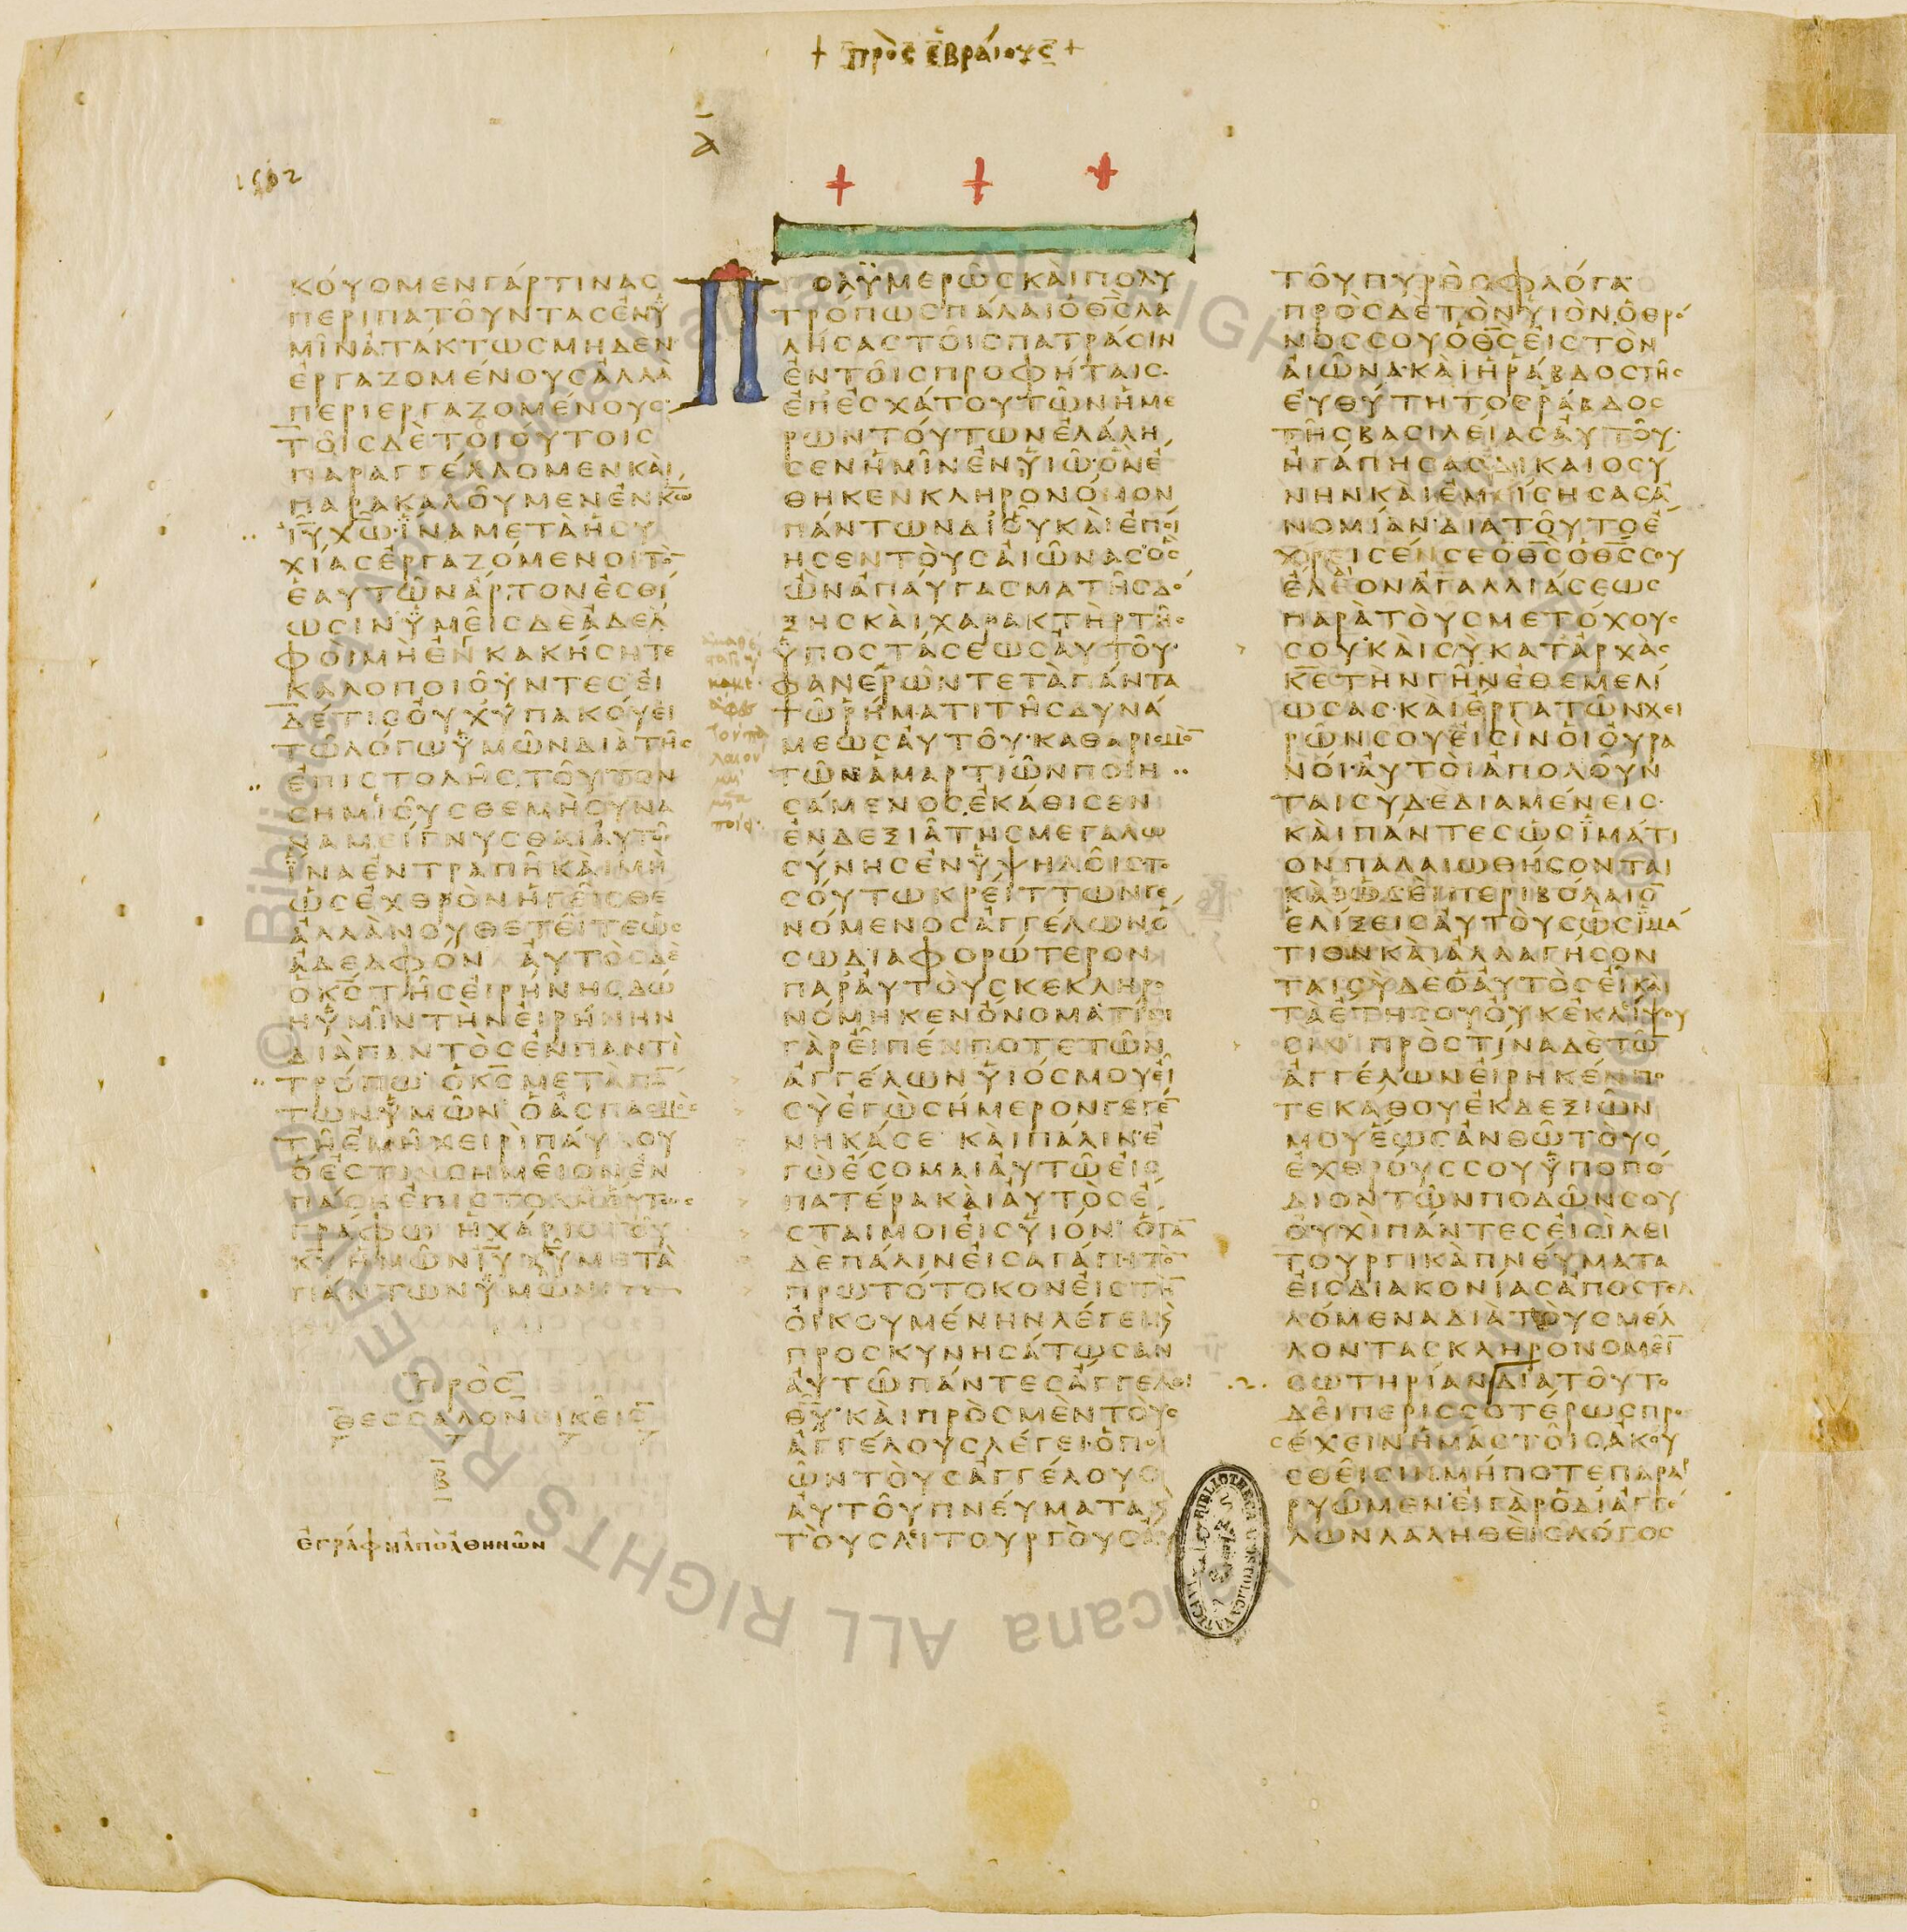 + πρὸς ἑβραίους +
α
1512
ΚΟΥΟΜΕΝΓΑΡΤΙΝΑΣ
ΠΕΡΙΠΑΤΟΥΝΤΑΣΕΝΥ
ΜΙΝΑΤΑΚΤΩΣΜΗΔΕΝ
ΕΡΓΑΖΟΜΕΝΟΥΣΑΛΛΑ
ΠΕΡΙΕΡΓΑΖΟΜΕΝΟΥΣ
ΤΟΙΣΔΕΤΟΙΟΥΤΟΙΣ
ΠΑΡΑΓΓΕΛΛΟΜΕΝΚΑΙ
ΠΑΡΑΚΑΛΟΥΜΕΝΕΝΚΩ
ΙΥΧΩΙΝΑΜΕΤΑΗΣΥ
ΧΙΑΣΕΡΓΑΖΟΜΕΝΟΙΤΟ̅
ΕΑΥΤΩΝΑΡΤΟΝΕΣΘΙ
ΩΣΙΝΥΜΕΙΣΔΕΑΔΕΛ
ΦΟΙΜΗΕΝΚΑΚΗΣΗΤΕ
ΚΑΛΟΠΟΙΟΥΝΤΕΣΕΙ
ΔΕΤΙΣΟΥΧΥΠΑΚΟΥΕΙ
ΤΩΛΟΓΩΥΜΩΝΔΙΑΤΗΣ
ΕΠΙΣΤΟΛΗΣΤΟΥΤΟΝ
ΣΗΜΙΟΥΣΘΕΜΗΣΥΝΑ
ΝΑΜΕΙΓΝΥΣΘΑΙΑΥΤΩ
ΙΝΑΕΝΤΡΑΠΗΚΑΙΜΗ
ΩΣΕΧΘΡΟΝΗΓΕΙΣΘΕ
ΑΛΛΑΝΟΥΘΕΤΕΙΤΕΩΣ
ΑΔΕΛΦΟΝ ΑΥΤΟΣΔΕ
ΟΚΣΤΗΣΕΙΡΗΝΗΣΔΩ
ΗΥΜΙΝΤΗΝΕΙΡΗΝΗΝ
ΔΙΑΠΑΝΤΟΣΕΝΠΑΝΤΙ
ΤΡΟΠΩ ΟΚΣΜΕΤΑΠΑ̅
ΤΩΝΥΜΩΝ ΟΑΣΠΑΣΜΟΣ
ΤΗΕΜΗΧΕΙΡΙΠΑΥΛΟΥ
ΟΕΣΤΙΝΣΗΜΕΙΟΝΕΝ
ΠΑΣΗΕΠΙΣΤΟΛΗΟΥΤΩΣ
ΓΡΑΦΩ ΗΧΑΡΙΣΤΟΥ
ΚΥΗΜΩΝΙΥΧΥΜΕΤΑ
ΠΑΝΤΩΝΥΜΩΝ
ΠΡΟΣ
ΘΕΣΣΑΛΟΝΕΙΚΕΙΣ
Β
ἐγράφη ἀπὸ ἀθηνῶν
Π
ΟΛΥΜΕΡΩΣΚΑΙΠΟΛΥ
ΤΡΟΠΩΣΠΑΛΑΙΟΘΣΛΑ
ΛΗΣΑΣΤΟΙΣΠΑΤΡΑΣΙΝ
ΕΝΤΟΙΣΠΡΟΦΗΤΑΙΣ
ΕΠΕΣΧΑΤΟΥΤΩΝΗΜΕ
ΡΩΝΤΟΥΤΩΝΕΛΑΛΗ
ΣΕΝΗΜΙΝΕΝΥΙΩΟΝΕ
ΘΗΚΕΝΚΛΗΡΟΝΟΜΟΝ
ΠΑΝΤΩΝΔΙΟΥΚΑΙΕΠΟΙ
ΗΣΕΝΤΟΥΣΑΙΩΝΑΣΟΣ
ΩΝΑΠΑΥΓΑΣΜΑΤΗΣΔΟ
ΞΗΣΚΑΙΧΑΡΑΚΤΗΡΤΗΣ
ΥΠΟΣΤΑΣΕΩΣΑΥΤΟΥ
ΦΑΝΕΡΩΝΤΕΤΑΠΑΝΤΑ
ΤΩΡΗΜΑΤΙΤΗΣΔΥΝΑ
ΜΕΩΣΑΥΤΟΥΚΑΘΑΡΙΣΜΟ̅
ΤΩΝΑΜΑΡΤΙΩΝΠΟΙΗ
ΣΑΜΕΝΟΣΕΚΑΘΙΣΕΝ
ΕΝΔΕΞΙΑΤΗΣΜΕΓΑΛΩ
ΣΥΝΗΣΕΝΥΨΗΛΟΙΣΤΟ
ΣΟΥΤΩΚΡΕΙΤΤΩΝΓΕ
ΝΟΜΕΝΟΣΑΓΓΕΛΩΝΟ
ΣΩΔΙΑΦΟΡΩΤΕΡΟΝ
ΠΑΡΑΥΤΟΥΣΚΕΚΛΗΡΟ
ΝΟΜΗΚΕΝΟΝΟΜΑΤΙΝΙ
ΓΑΡΕΙΠΕΝΠΟΤΕΤΩΝ
ΑΓΓΕΛΩΝΥΙΟΣΜΟΥΕΙ
ΣΥΕΓΩΣΗΜΕΡΟΝΓΕΓΕ̅
ΝΗΚΑΣΕ ΚΑΙΠΑΛΙΝΕ
ΓΩΕΣΟΜΑΙΑΥΤΩΕΙΣ
ΠΑΤΕΡΑΚΑΙΑΥΤΟΣΕ
ΣΤΑΙΜΟΙΕΙΣΥΙΟΝ ΟΤΑ̅
ΔΕΠΑΛΙΝΕΙΣΑΓΑΓΗΤΟ̅
ΠΡΩΤΟΤΟΚΟΝΕΙΣΤΗ̅
ΟΙΚΟΥΜΕΝΗΝΛΕΓΕΙϗ
ΠΡΟΣΚΥΝΗΣΑΤΩΣΑΝ
ΑΥΤΩΠΑΝΤΕΣΑΓΓΕΛΟΙ
ΘΥΚΑΙΠΡΟΣΜΕΝΤΟΥΣ
ΑΓΓΕΛΟΥΣΛΕΓΕΙΟΠΟΙ
ΩΝΤΟΥΣΑΓΓΕΛΟΥΣ
ΑΥΤΟΥΠΝΕΥΜΑΤΑϗ
ΤΟΥΣΛΙΤΟΥΡΓΟΥΣΑΥ
ΤΟΥΠΥΡΟΣΦΛΟΓΑ
ΠΡΟΣΔΕΤΟΝΥΙΟΝΟΘΡΟ
ΝΟΣΣΟΥΟΘΣΕΙΣΤΟΝ
ΑΙΩΝΑΚΑΙΗΡΑΒΔΟΣΤΗΣ
ΕΥΘΥΤΗΤΟΣΡΑΒΔΟΣ
ΤΗΣΒΑΣΙΛΕΙΑΣΑΥΤΟΥ
ΗΓΑΠΗΣΑΣΔΙΚΑΙΟΣΥ
ΝΗΝΚΑΙΕΜΙΣΗΣΑΣΑ
ΝΟΜΙΑΝΔΙΑΤΟΥΤΟΕ
ΧΡΕΙΣΕΝΣΕΟΘΣΟΘΣΣΟΥ
ΕΛΕΟΝΑΓΑΛΛΙΑΣΕΩΣ
ΠΑΡΑΤΟΥΣΜΕΤΟΧΟΥΣ
ΣΟΥΚΑΙΣΥΚΑΤΑΡΧΑΣ
ΚΕΤΗΝΓΗΝΕΘΕΜΕΛΙ
ΩΣΑΣΚΑΙΕΡΓΑΤΩΝΧΕΙ
ΡΩΝΣΟΥΕΙΣΙΝΟΙΟΥΡΑ
ΝΟΙΑΥΤΟΙΑΠΟΛΟΥΝ
ΤΑΙΣΥΔΕΔΙΑΜΕΝΕΙΣ
ΚΑΙΠΑΝΤΕΣΩΣΙΜΑΤΙ
ΟΝΠΑΛΑΙΩΘΗΣΟΝΤΑΙ
ΚΑΙΩΣΕΙΠΕΡΙΒΟΛΑΙΟ̅
ΕΛΙΞΕΙΣΑΥΤΟΥΣΩΣΙΜΑ
ΤΙΟΝΚΑΙΑΛΛΑΓΗΣΟΝ
ΤΑΙΣΥΔΕΟΑΥΤΟΣΕΙΚΑΙ
ΤΑΕΤΗΣΟΥΟΥΚΕΚΛΙΨΟΥ
ΣΙΝ ΠΡΟΣΤΙΝΑΔΕΤΩ̅
ΑΓΓΕΛΩΝΕΙΡΗΚΕΝΠΟ
ΤΕΚΑΘΟΥΕΚΔΕΞΙΩΝ
ΜΟΥΕΩΣΑΝΘΩΤΟΥΣ
ΕΧΘΡΟΥΣΣΟΥΥΠΟΠΟ
ΔΙΟΝΤΩΝΠΟΔΩΝΣΟΥ
ΟΥΧΙΠΑΝΤΕΣΕΙΣΙΛΕΙ
ΤΟΥΡΓΙΚΑΠΝΕΥΜΑΤΑ
ΕΙΣΔΙΑΚΟΝΙΑΣΑΠΟΣΤΕΛ
ΛΟΜΕΝΑΔΙΑΤΟΥΣΜΕΛ
ΛΟΝΤΑΣΚΛΗΡΟΝΟΜΕΙ̅
ΣΩΤΗΡΙΑΝΔΙΑΤΟΥΤΟ
ΔΕΙΠΕΡΙΣΣΟΤΕΡΩΣΠΡΟ
ΣΕΧΕΙΝΗΜΑΣΤΟΙΣΑΚΟΥ
ΣΘΕΙΣΙΝΜΗΠΟΤΕΠΑΡΑΡ
ΡΥΩΜΕΝΕΙΓΑΡΟΔΙΑΓΓΕ
ΛΩΝΛΑΛΗΘΕΙΣΛΟΓΟΣ
© Biblioteca Apostolica Vaticana ALL RIGHTS RESERVED